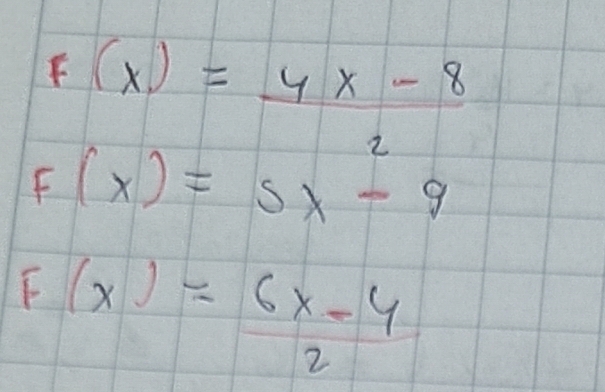 F(x) = 4x - 8
2
F(x) = 5x - 9
F(x) = 6x - 4
2